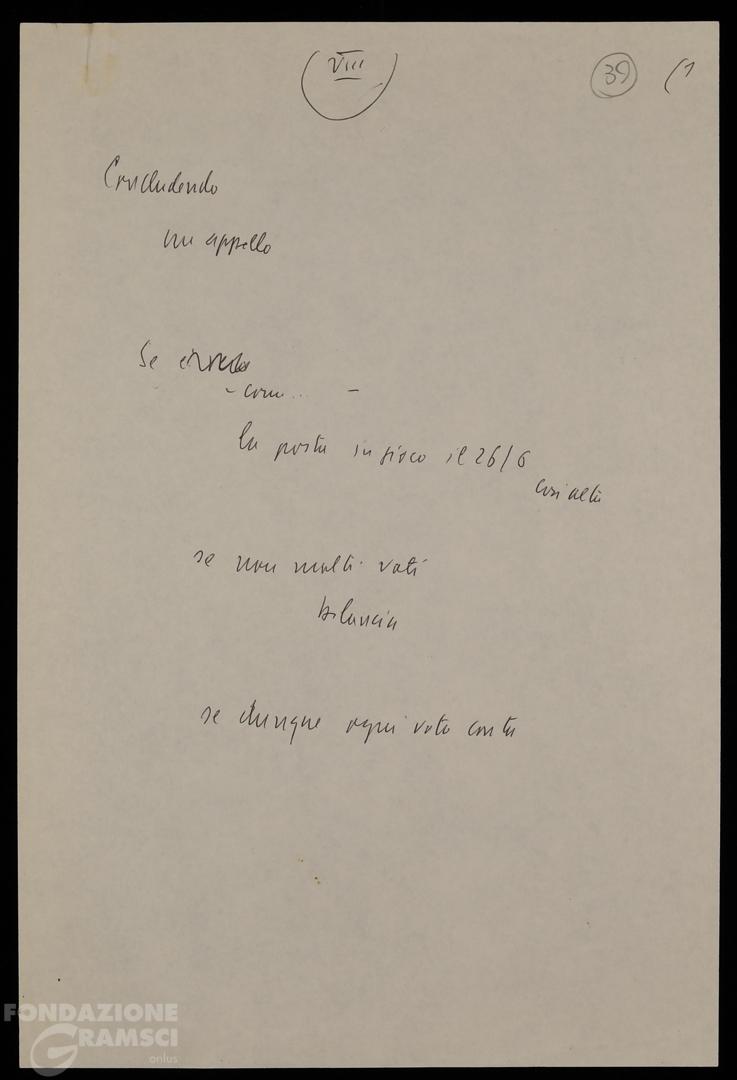 VIII
39 (1
Concludendo
un appello
Se
- com... -
la posta in gioco il 26/6
così alta
se non molti voti
bilancia
se dunque ogni voto conta
FONDAZIONE
GRAMSCI
onlus